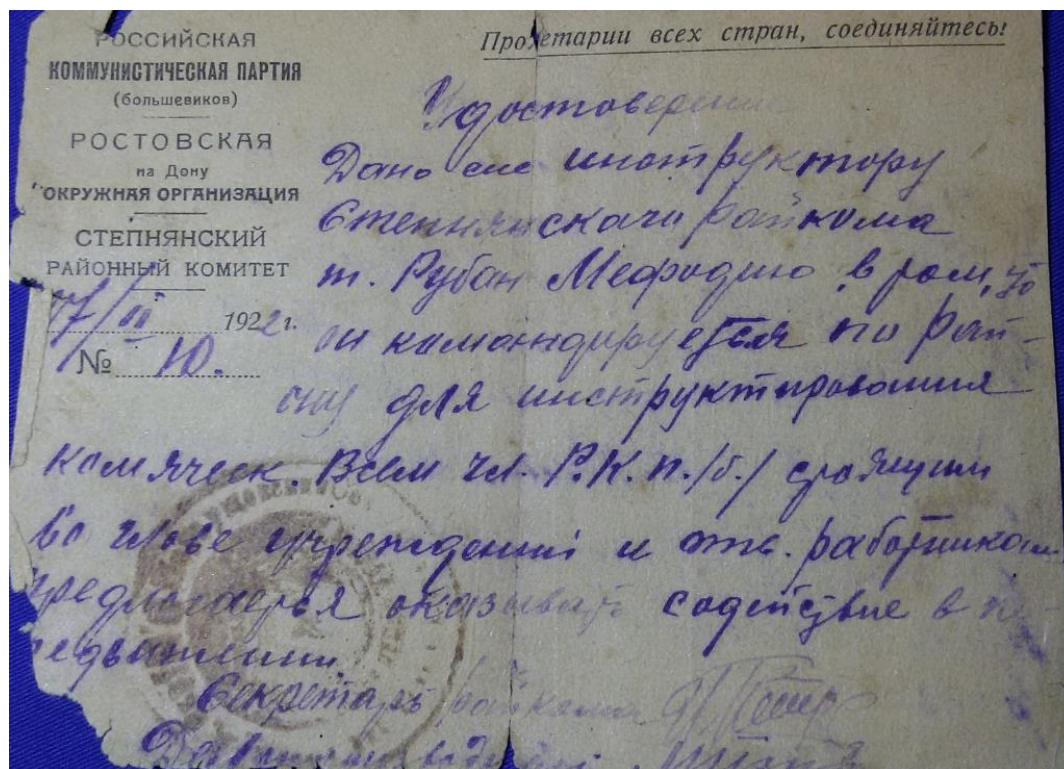 РОССИЙСКАЯ
КОММУНИСТИЧЕСКАЯ ПАРТИЯ
(большевиков)
РОСТОВСКАЯ
на Дону
ОКРУЖНАЯ ОРГАНИЗАЦИЯ
СТЕПНЯНСКИЙ
РАЙОННЫЙ КОМИТЕТ
17/III 1922 г.
№ 10.
Пролетарии всех стран, соединяйтесь!
Удостоверение
Дано сие инструктору
Степнянского райкома
т. Рубан Мефодию в том, что
он командируется по рай-
ону для инструктирования
комячеек. Всем чл. Р.К.П./б./ стоящим
во главе учреждений и отв. работникам
предлагается оказывать содействие в пе-
редвижении
Секретарь райкома